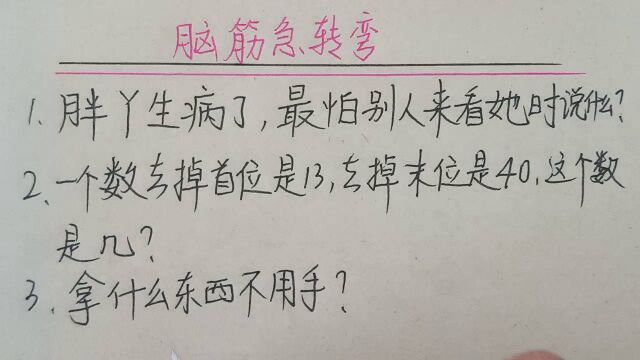 脑筋急转弯
1. 胖丫生病了,最怕别人来看她时说什么?
2、一个数去掉首位是13,去掉末位是40,这个数
是几?
3、拿什么东西不用手?